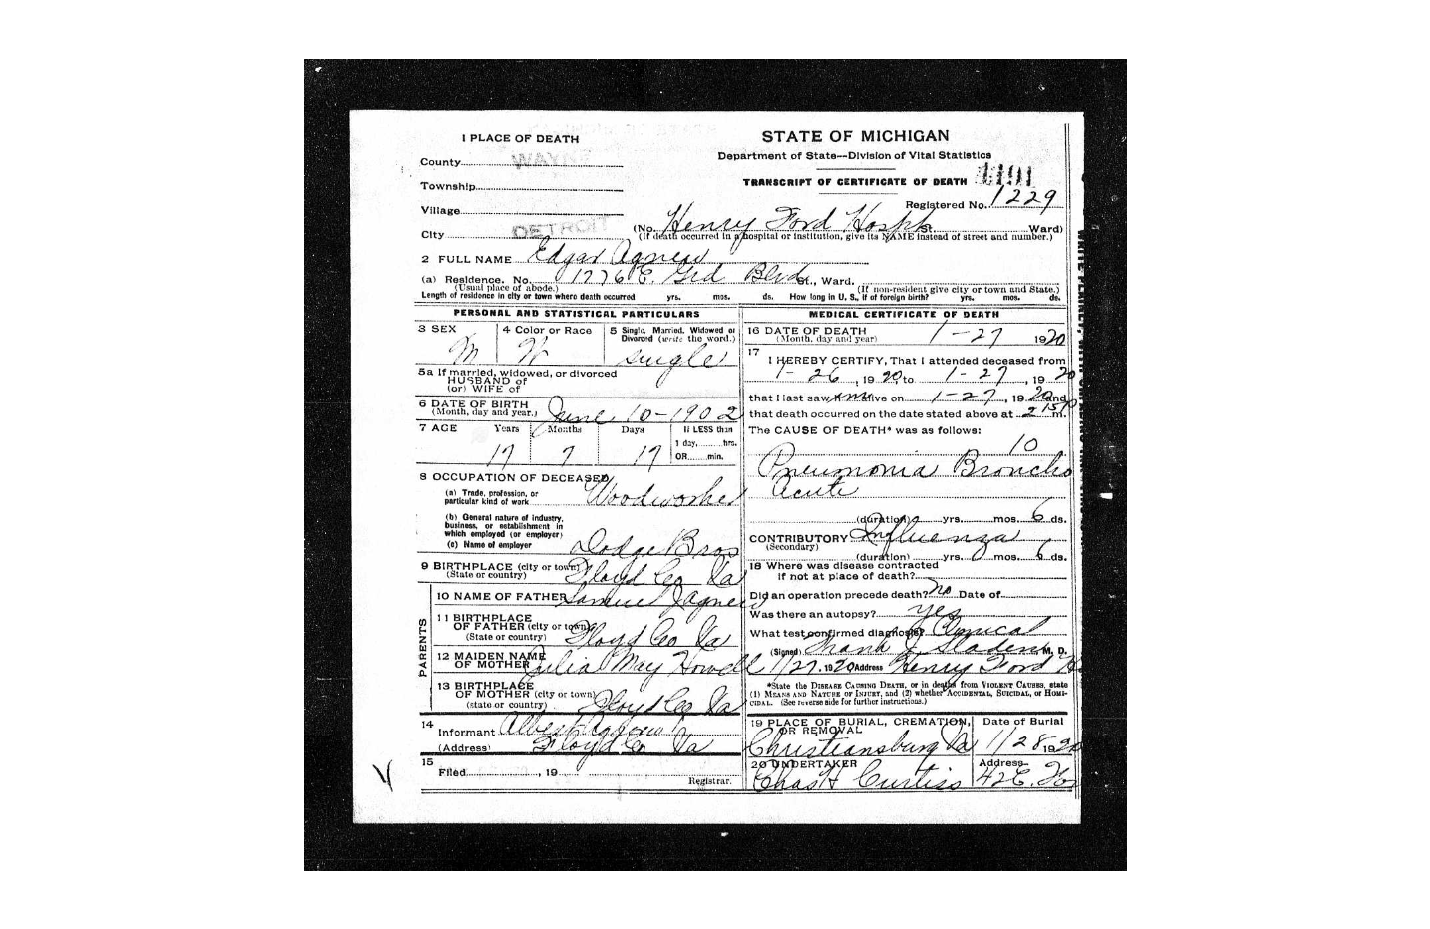 1 PLACE OF DEATH
County WAYNE
Township
Village
City DETROIT
STATE OF MICHIGAN
Department of State—Division of Vital Statistics
TRANSCRIPT OF CERTIFICATE OF DEATH
Registered No. 1229
(No. Henry Ford Hosp St. Ward)
(If death occurred in a hospital or institution, give its NAME instead of street and number.)
2 FULL NAME Edgar Agnew
(a) Residence. No. 1776 E. Grd Blvd St., Ward.
(Usual place of abode.) (If non-resident give city or town and State.)
Length of residence in city or town where death occurred yrs. mos. ds. How long in U. S., if of foreign birth? yrs. mos. ds.
PERSONAL AND STATISTICAL PARTICULARS
3 SEX M
4 Color or Race W
5 Single, Married, Widowed or Divorced (write the word.) single
5a If married, widowed, or divorced
HUSBAND of
(or) WIFE of
6 DATE OF BIRTH
(Month, day and year.) June 10-1902
7 AGE Years Months Days If LESS than
1 day, hrs.
OR min.
17 7 17
8 OCCUPATION OF DECEASED
(a) Trade, profession, or
particular kind of work Woodworker
(b) General nature of industry,
business, or establishment in
which employed (or employer)
(c) Name of employer Dodge Bros
9 BIRTHPLACE (city or town)
(State or country) Floyd Co Va
PARENTS
10 NAME OF FATHER Samuel J Agnew
11 BIRTHPLACE
OF FATHER (city or town)
(State or country) Floyd Co Va
12 MAIDEN NAME
OF MOTHER Julia May Howell
13 BIRTHPLACE
OF MOTHER (city or town)
(state or country) Floyd Co Va
14
Informant Albert Agnew
(Address) Floyd Co Va
15
Filed , 19
Registrar.
MEDICAL CERTIFICATE OF DEATH
16 DATE OF DEATH
(Month, day and year) 1-27 1920
17
I HEREBY CERTIFY, That I attended deceased from
1-26, 1920, to 1-27, 1920
that I last saw him alive on 1-27, 1920 and
that death occurred on the date stated above at 2 15 P m.
The CAUSE OF DEATH* was as follows:
10
Pneumonia Broncho
Acute
(duration) yrs. mos. 6 ds.
CONTRIBUTORY Influenza
(Secondary)
(duration) yrs. mos. 6 ds.
18 Where was disease contracted
if not at place of death?
Did an operation precede death? no Date of
Was there an autopsy? yes
What test confirmed diagnosis? Clinical
(Signed) Frank J. Sladen M. D.
1/27, 1920 Address Henry Ford
*State the DISEASE CAUSING DEATH, or in deaths from VIOLENT CAUSES, state
(1) MEANS AND NATURE OF INJURY, and (2) whether ACCIDENTAL, SUICIDAL, or HOMI-
CIDAL. (See reverse side for further instructions.)
19 PLACE OF BURIAL, CREMATION,
OR REMOVAL
Christiansburg Va
Date of Burial
1/28 1920
20 UNDERTAKER
Chas H Curtiss
Address
42 E.